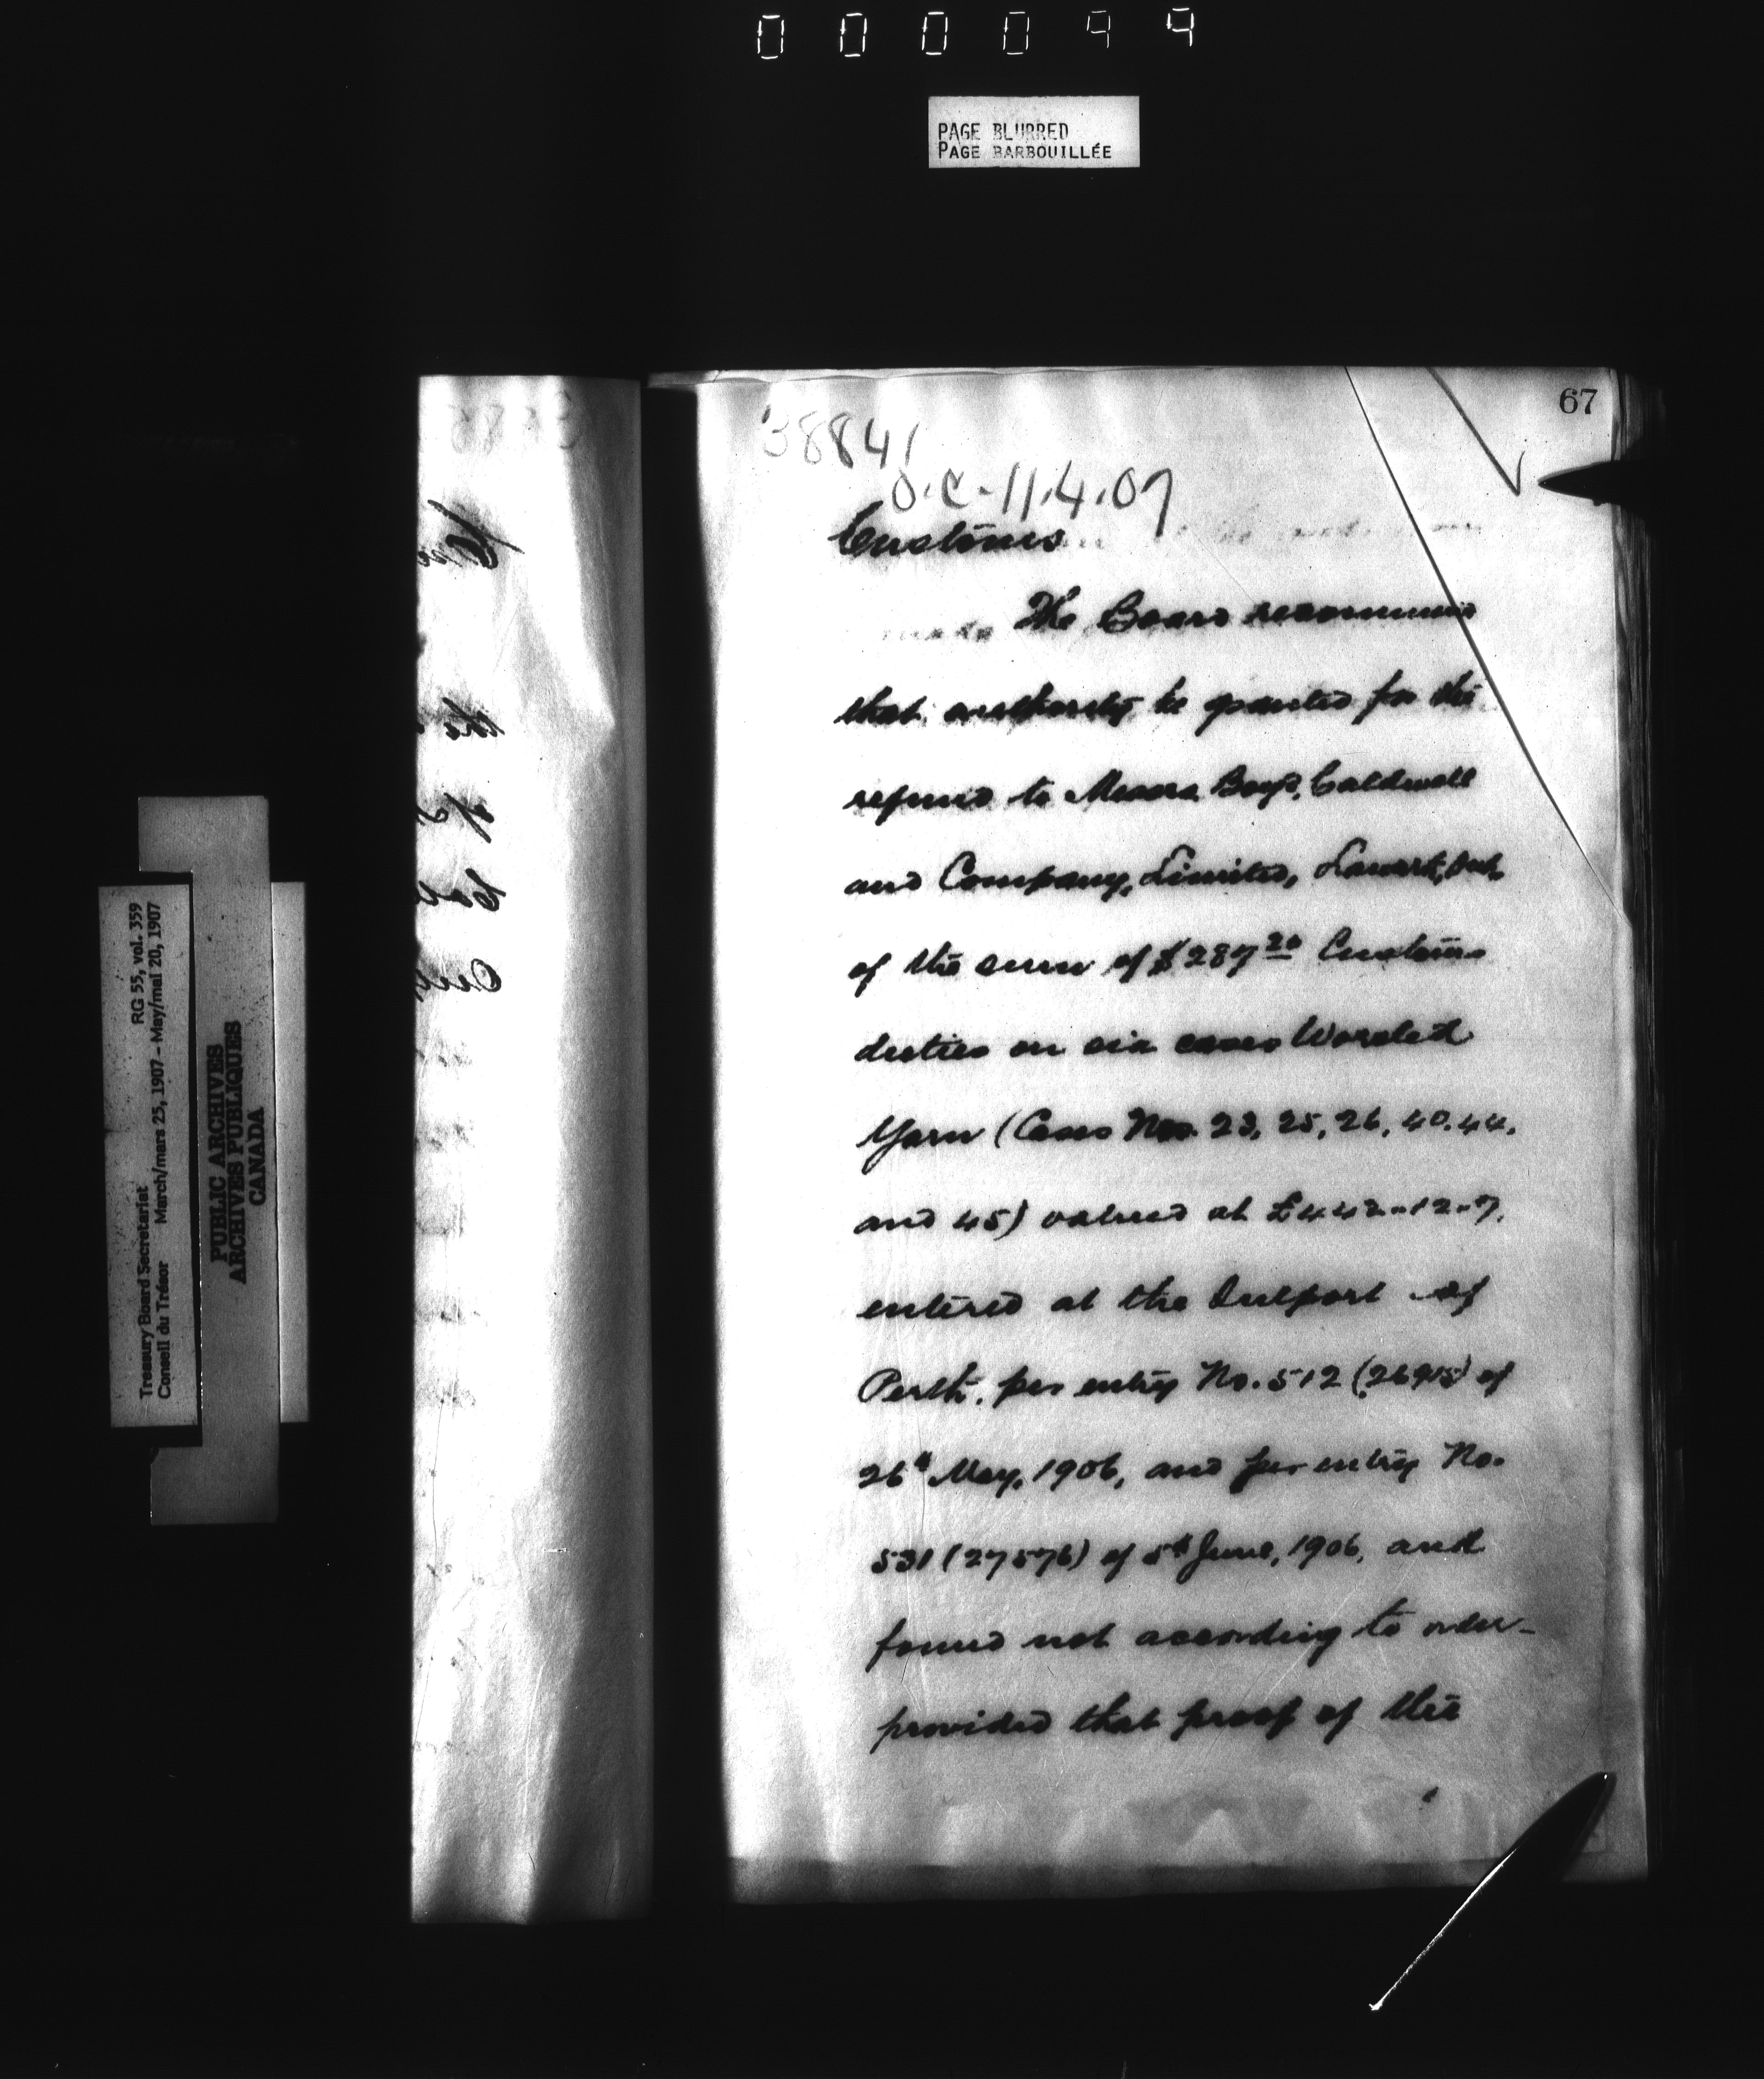 000044
PAGE BLURRED
PAGE BARBOUILLÉE
67
38841
O.C.-11.4.07
Customs
The Board recommend
that authority be granted for the
refund to Messrs Boyd, Caldwell
and Company, Limited, Lanark, Ont.
of the sum of $287 20 Customs
duties on six cases Worsted
Yarn (Cases Nos. 23, 25, 26, 40. 44,
and 45) valued at £442-12-7.
entered at the Outport of
Perth, per entry No. 512 (26915) of
26th May, 1906, and per entry No.
531 (27576) of 5th June, 1906, and
found not according to order-
provided that proof of the
Treasury Board Secretariat RG 55, vol. 359
Conseil du Trésor March/mars 25, 1907 - May/mai 20, 1907
PUBLIC ARCHIVES
ARCHIVES PUBLIQUES
CANADA